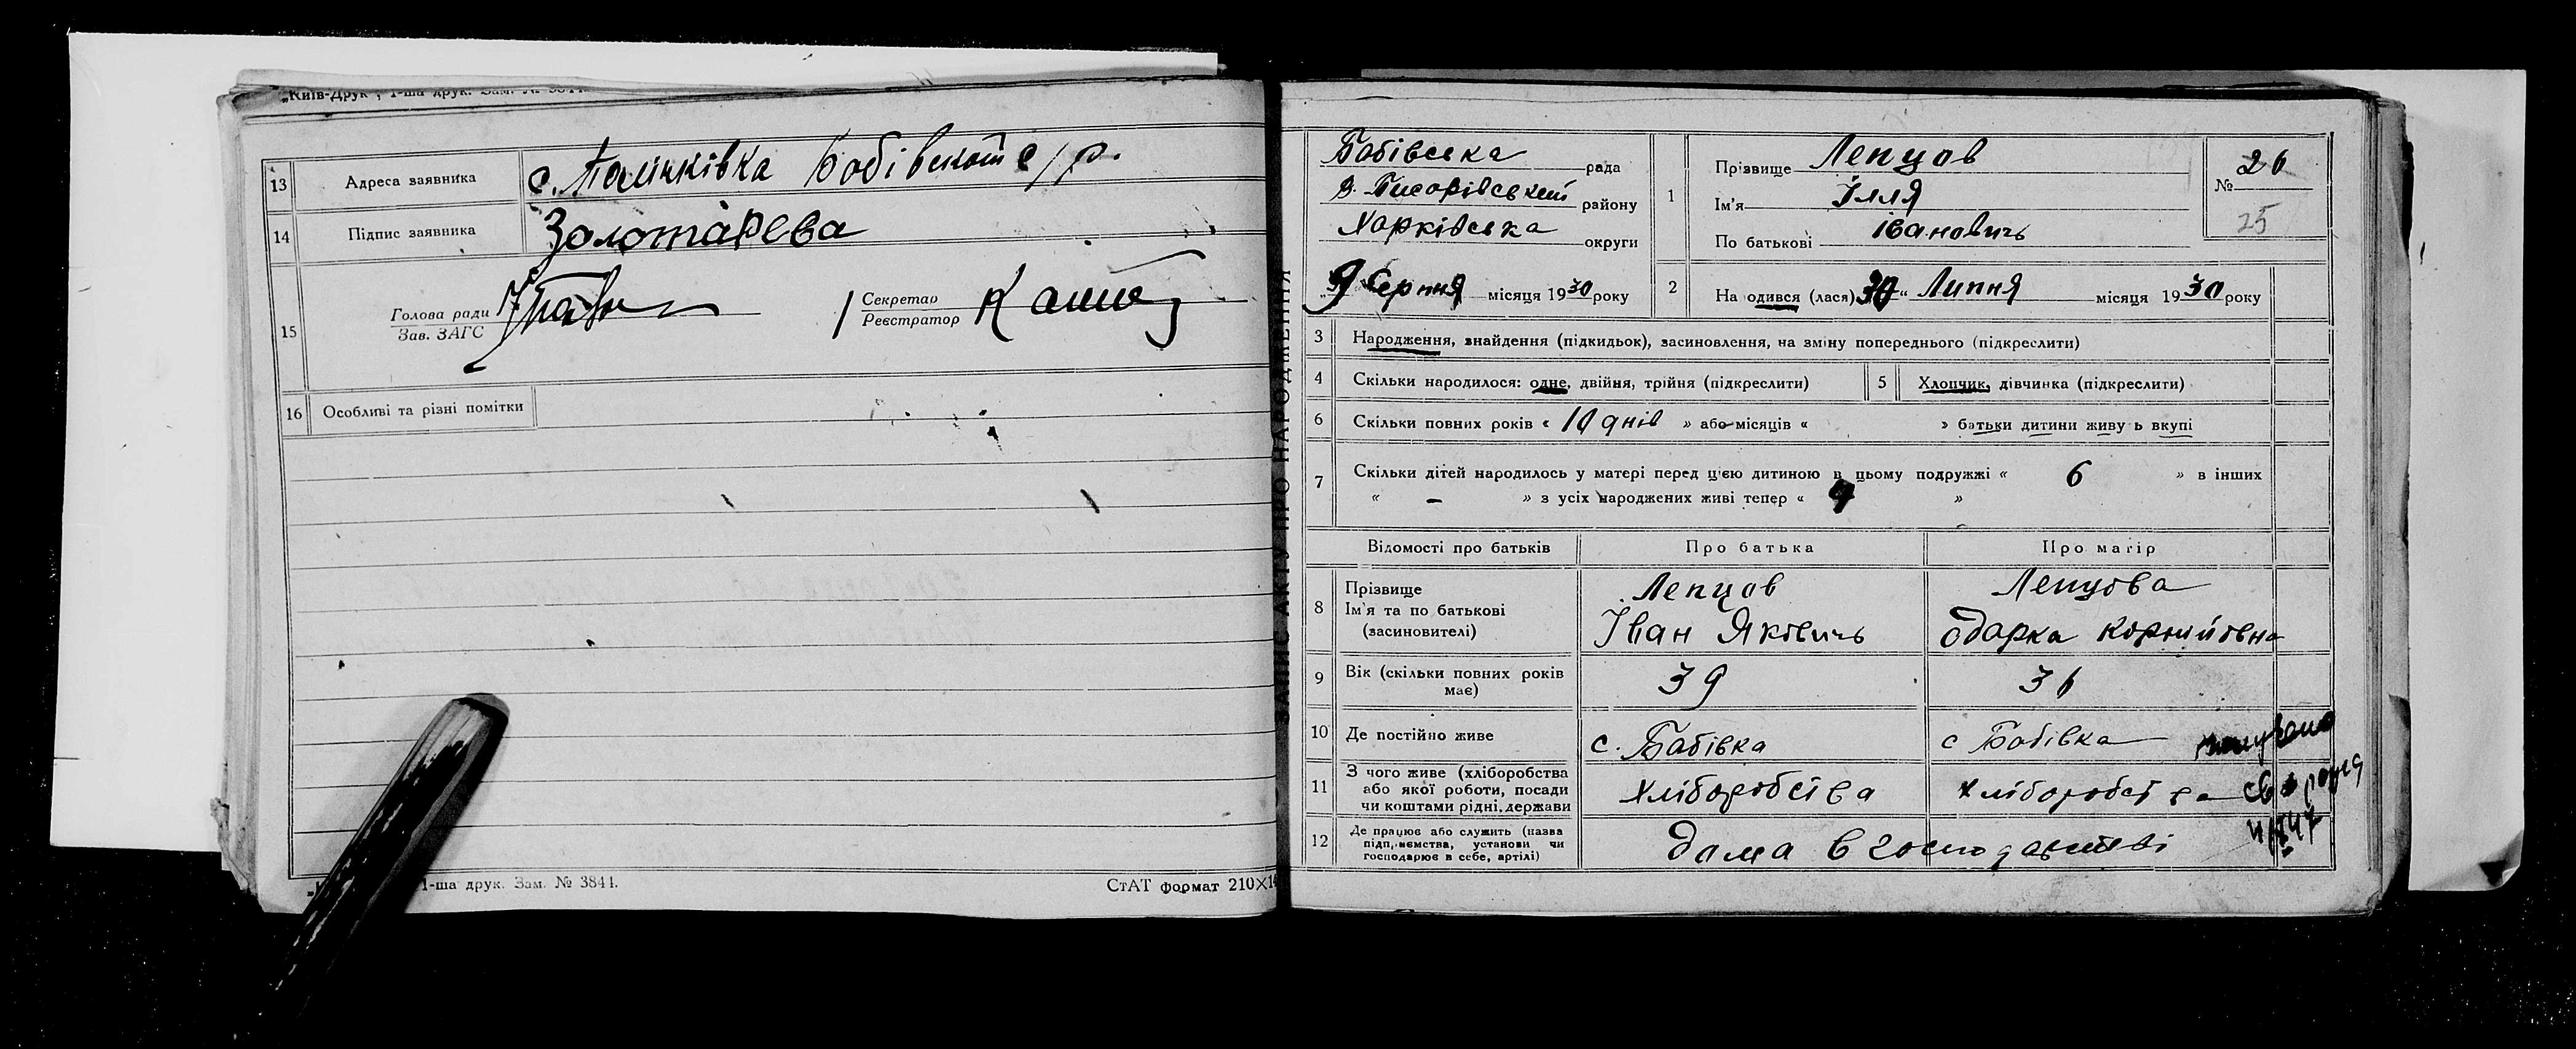 „Київ-Друк", 1-ша друк. Зам. №
13 Адреса заявника с. Бобівскот с/р.
14 Підпис заявника Золотарева
15 Голова ради
Зав. ЗАГС
Секретар
Реєстратор
16 Особливі та різні помітки
1-ша друк. Зам. № 3844.
СтАТ формат 210×1
ЗАПИС АКТУ ПРО НАРОДЖЕННЯ
Бабівська рада
району
Харківська округи
9 Серпня місяця 1930 року
1 Прізвище Лепцов
Ім'я Ілля
По батькові Івановичь
№ 26
25
2 На одився (лася) 30 “ Липня місяця 1930 року
3 Народження, знайдення (підкидьок), засиновлення, на зміну попереднього (підкреслити)
4 Скільки народилося: одне, двійня, трійня (підкреслити)
5 Хлопчик, дівчинка (підкреслити)
6 Скільки повних років « 10 днів » або місяців « » батьки дитини живу ь вкупі
7 Скільки дітей народилось у матері перед цією дитиною в цьому подружжі « 6 » в інших
« – » з усіх народжених живі тепер « »
Відомості про батьків Про батька Про матір
8 Прізвище
Ім'я та по батькові
(засиновителі)
Лепцов
Іван Яковичь
Лепцова
Одарка Корнийовна
9 Вік (скільки повних років має) 39 36
10 Де постійно живе с. Бабівка с Бабівка
11 З чого живе (хліборобства
або якої роботи, посади
чи коштами рідні, держави
Хліборобства Хліборобства
12 Де працює або служить (назва
підп, иємства, установи чи
господарює в себе, артілі)
дома в господавстві